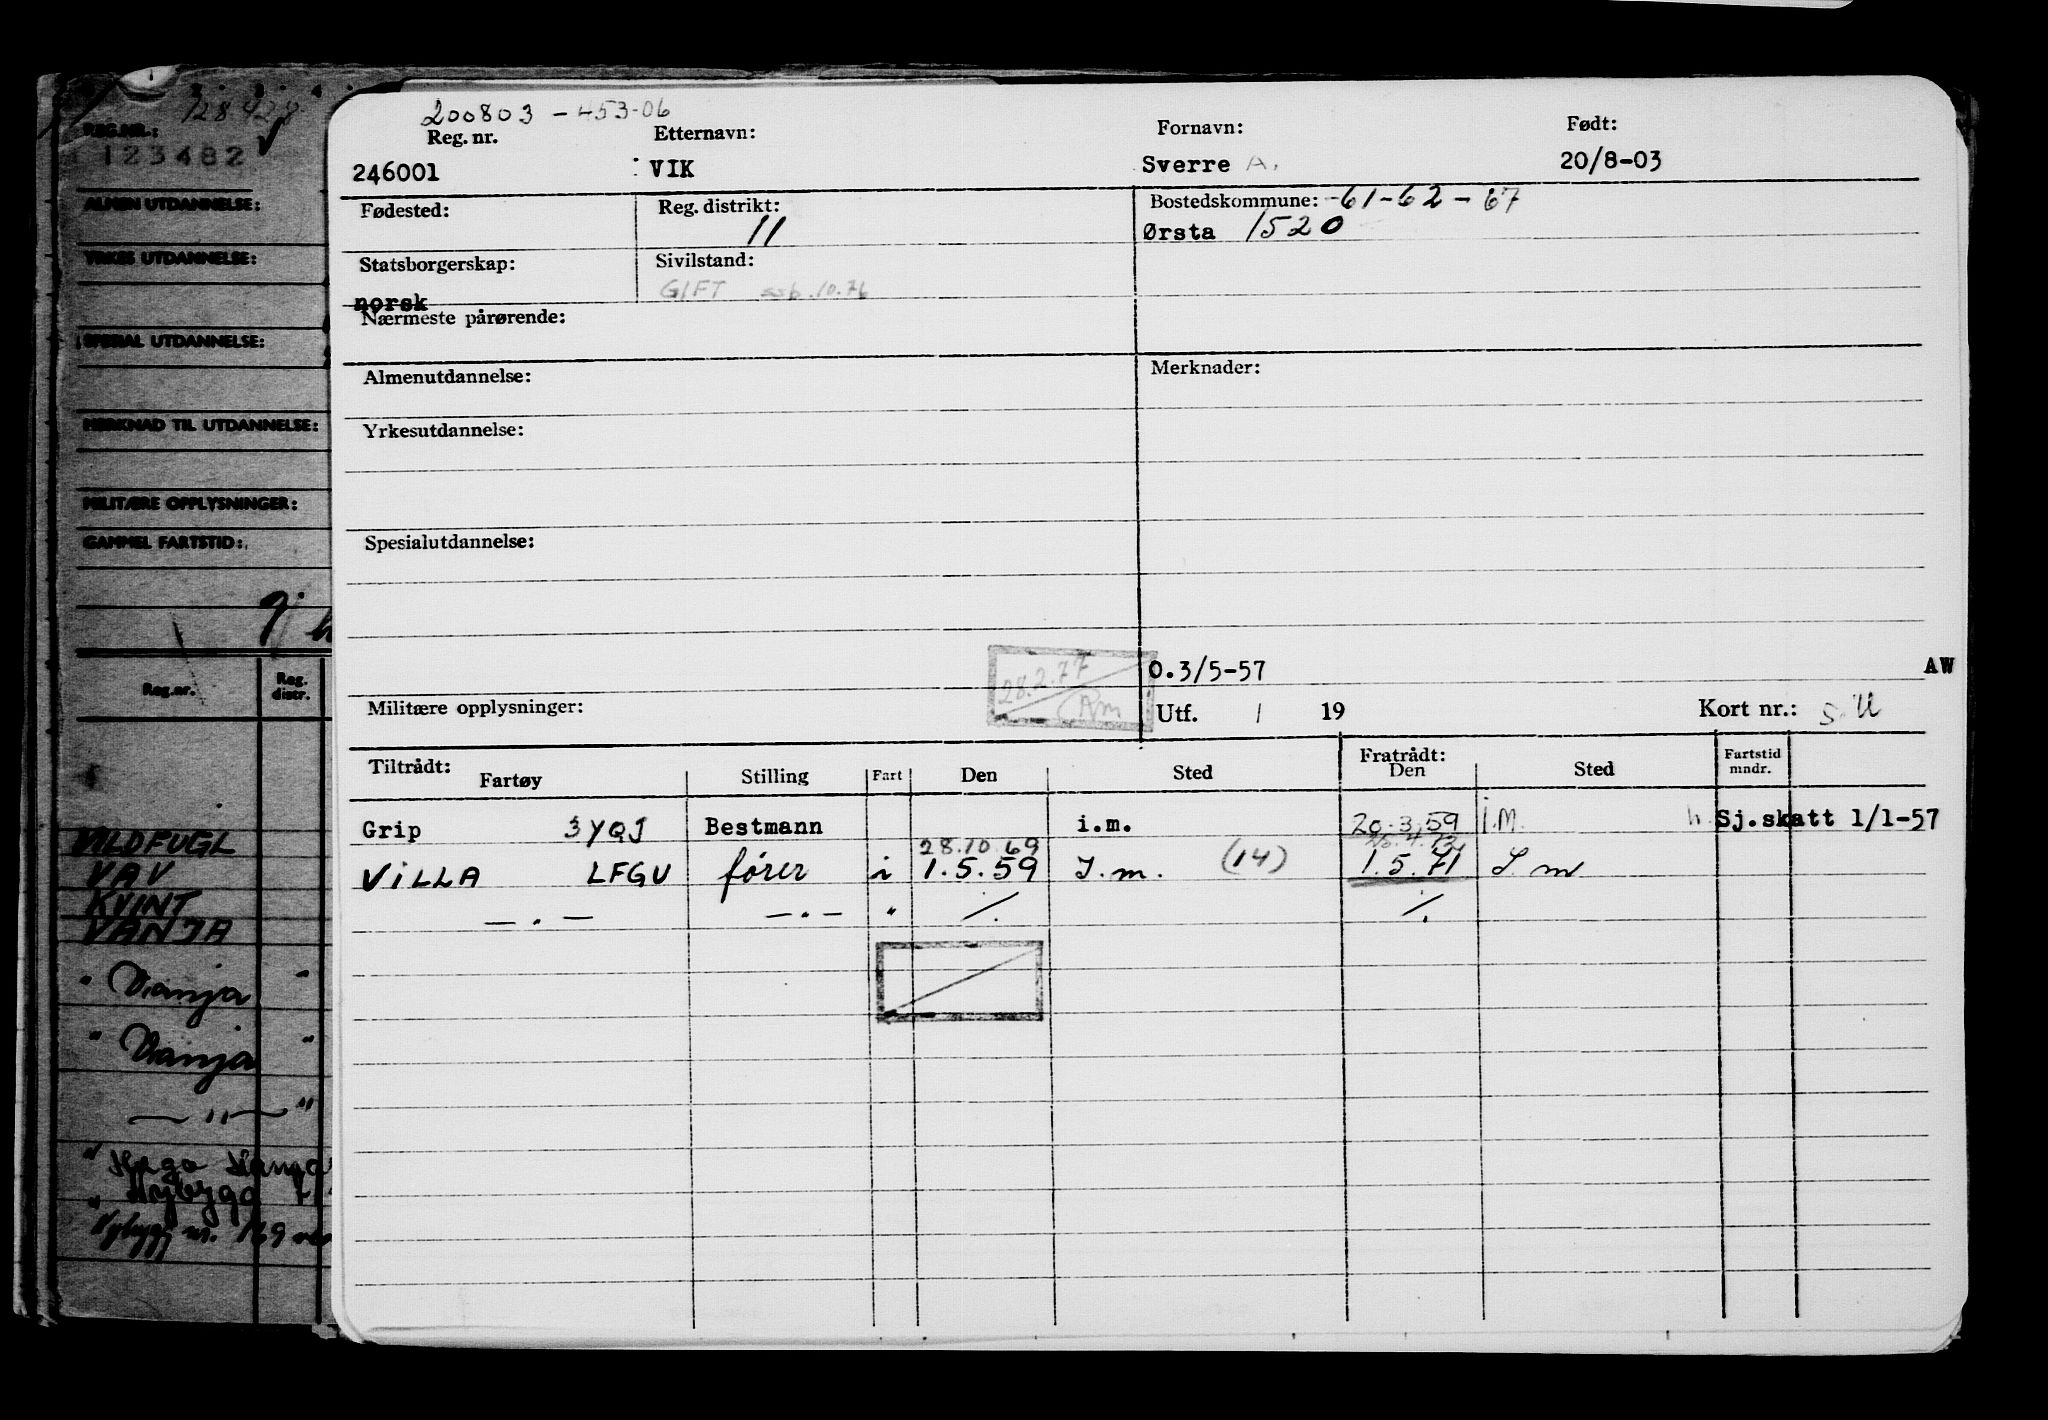 128424
REG.NR.:
123482
ALMEN UTDANNELSE:
YRKES UTDANNELSE:
SPESIAL UTDANNELSE:
MERKNAD TIL UTDANNELSE:
MILITÆRE OPPLYSNINGER:
GAMMEL FARTSTID:
Reg.nr. Reg. distr.
VILDFUGL
VAV
KVINT
VANJA
" Vanja "
" Vanja "
— " — "
200803 - 453-06
Reg. nr. Etternavn: Fornavn: Født:
246001 VIK Sverre A. 20/8-03
Fødested: Reg. distrikt: Bostedskommune: -61-62-67
11 Ørsta 1520
Statsborgerskap: Sivilstand:
norsk GIFT ssb.10.76
Nærmeste pårørende:
Almenutdannelse: Merknader:
Yrkesutdannelse:
Spesialutdannelse:
28.2.77
O.3/5-57 AW
Militære opplysninger: Utf. / 19 Kort nr.:
Tiltrådt: Fratrådt: Fartstid
Fartøy Stilling Fart Den Sted Den Sted mndr.
Grip 3YQJ Bestmann i.m. 20.3.59 i.M. Sj.skatt 1/1-57
28.10.69
VILLA LFGU fører i 1.5.59 I.m. (14) 1.5.71 I.m
— . — — . — " ./. ./.